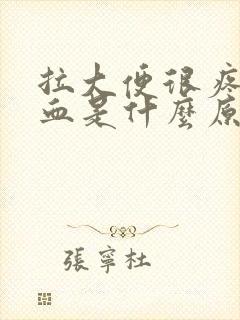 拉大便很疼
血是什麼原
張寧杜